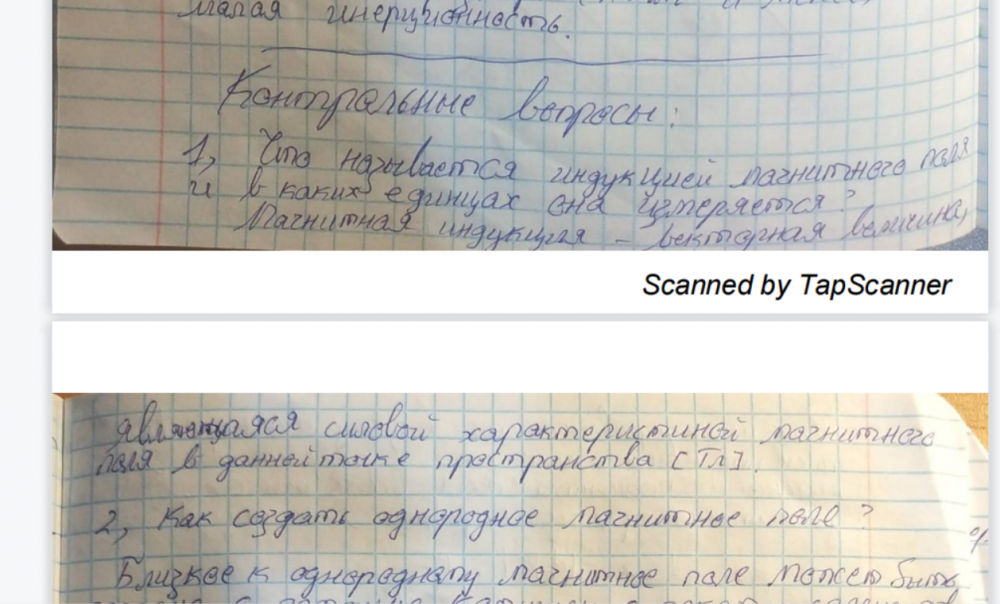 малая инерционность.
Контрольные вопросы:
1, Что называется индукцией магнитного поля
и в каких единцах она измеряется?
Магнитная индукция – векторная величина,
Scanned by TapScanner
являющаяся силовой характеристикой магнитного
поля в данной точке пространства [Тл].
2, Как создать однородное магнитное поле?
Близкое к однородному магнитное поле может быть